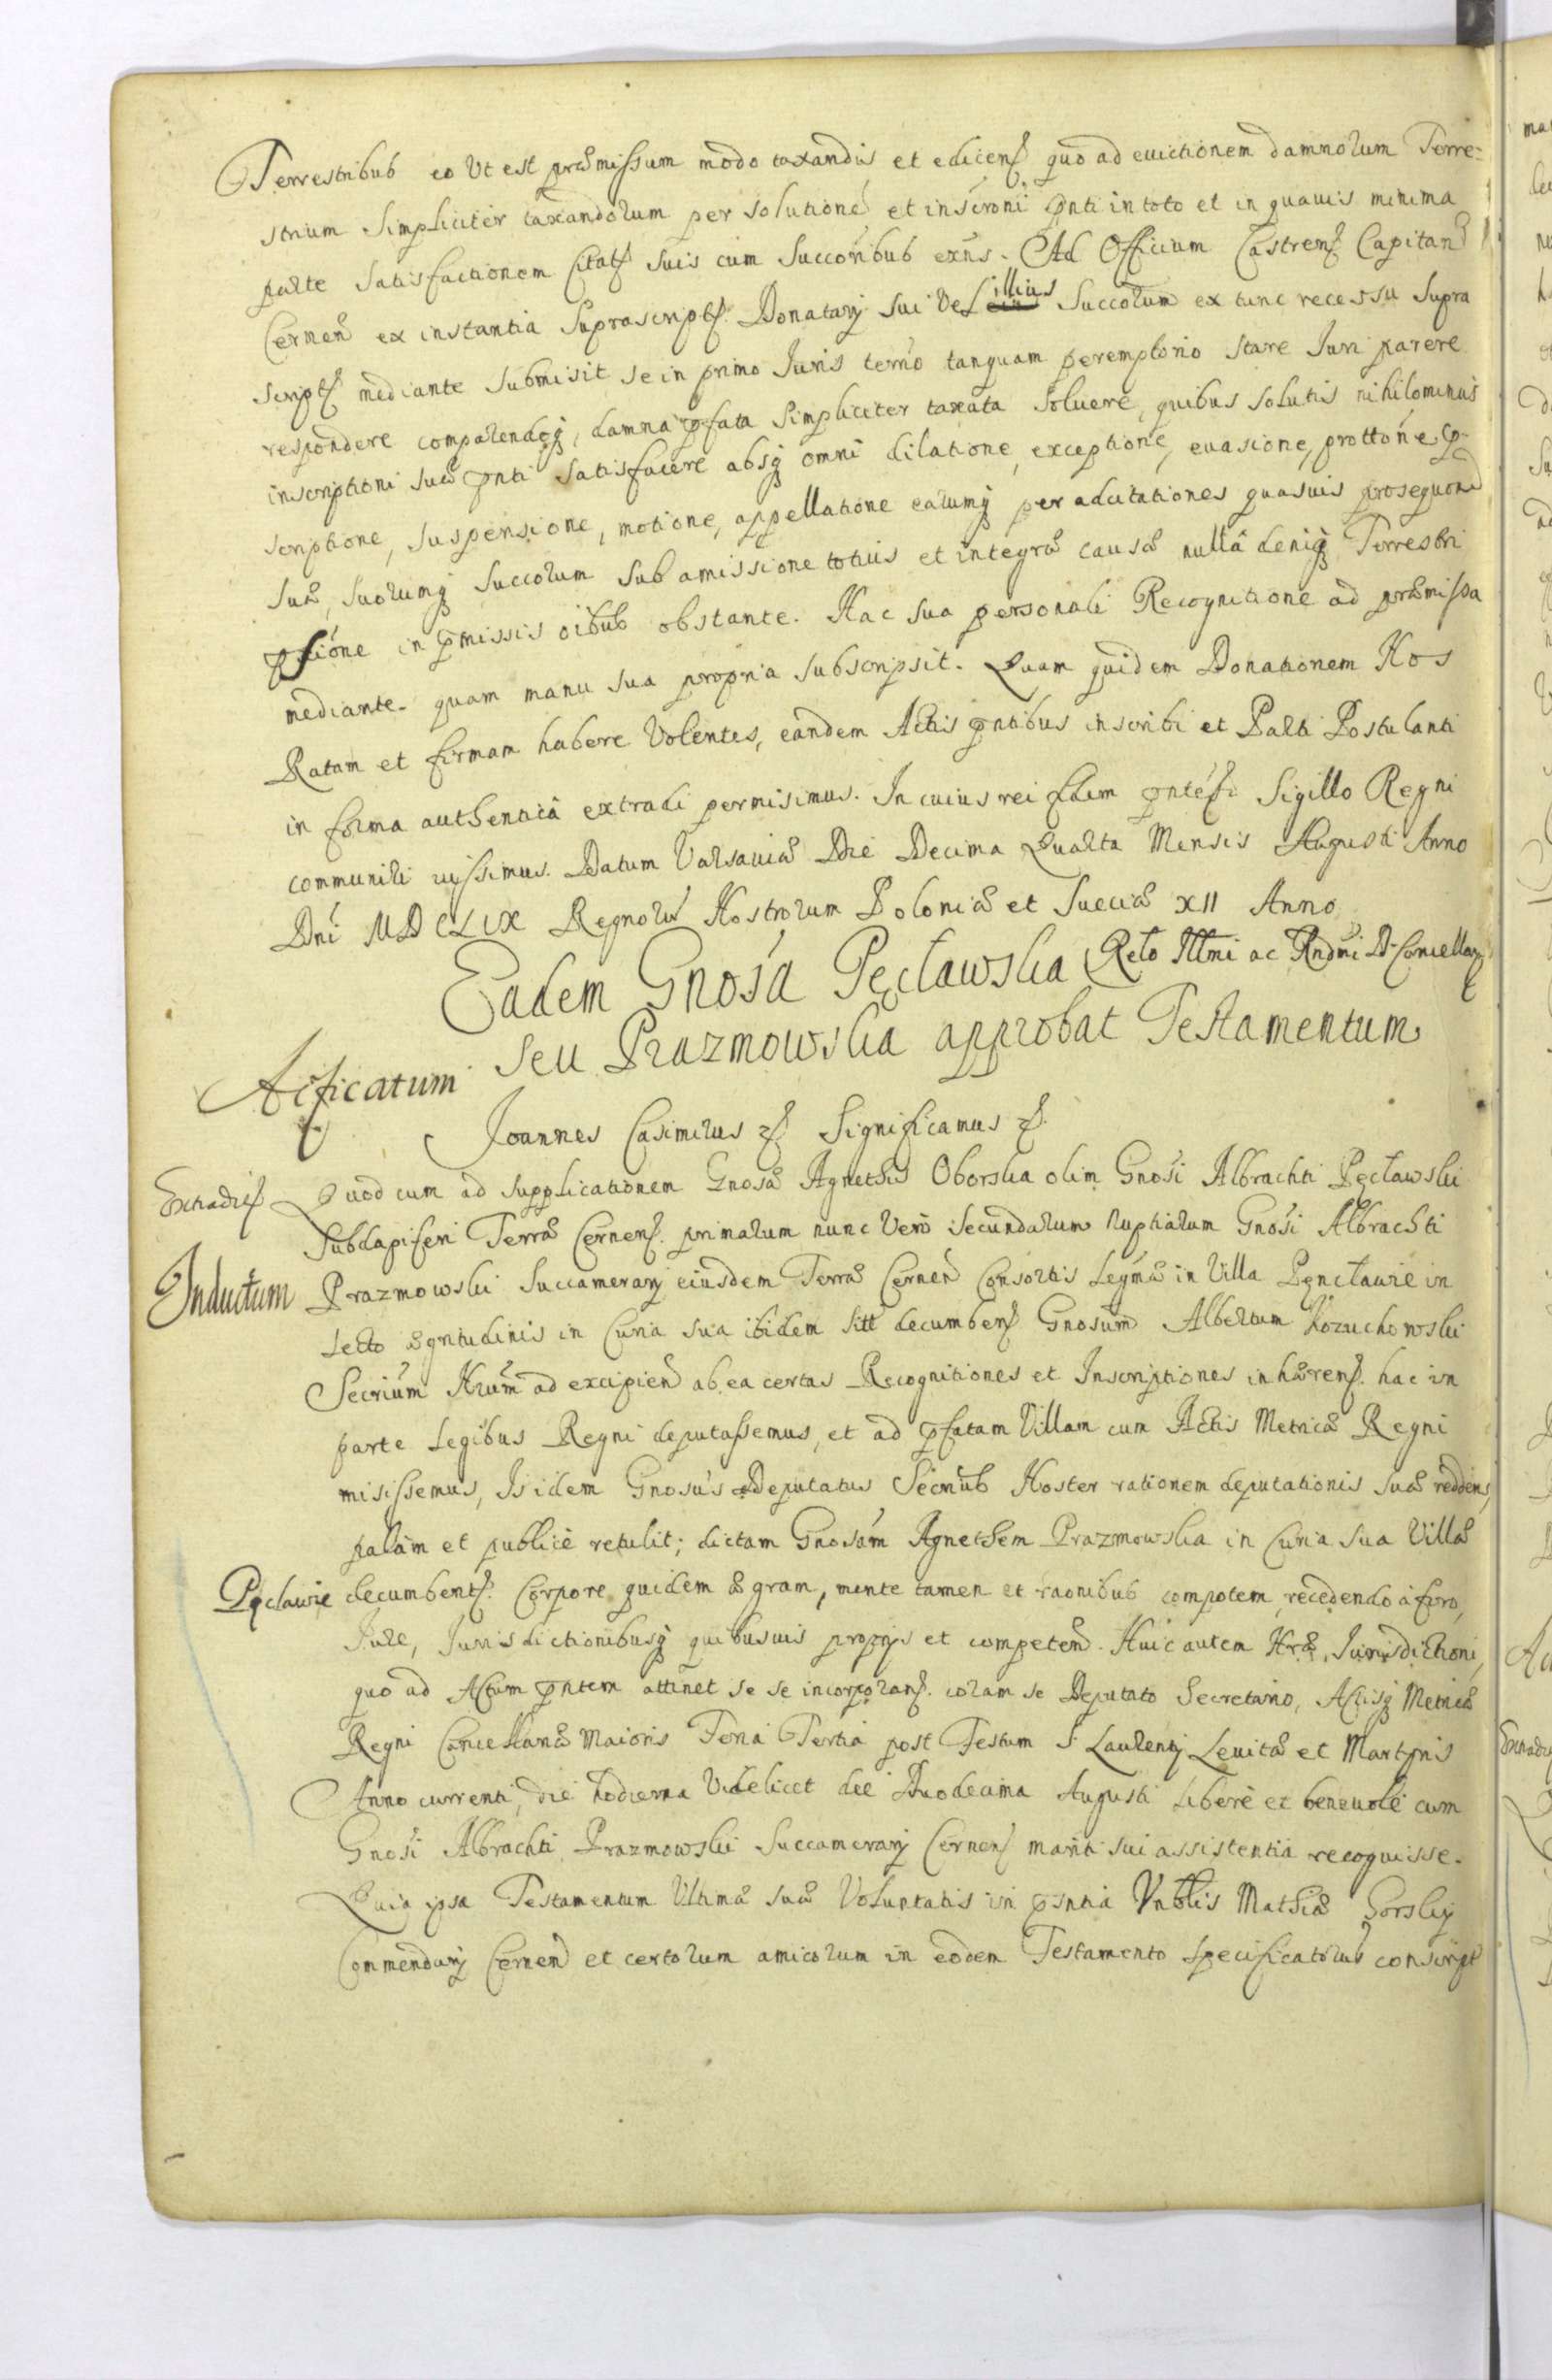 Terrestribus eo Ut est præmissum modo taxandis et edicen quo ad evictionem damnorum Terre=
strium Simpliciter taxandorum per solutione et inscroni pnti in toto et in quauis minima
parte Satisfactionem Citat suis cum Succoribus exns. Ad Officium Castren Capitan
Cernen ex instantia Suprascript Donatarij sui Vel illius Succorum ex tunc recessu supra
script mediante submisit se in primo Juris termo tanquam peremptorio stare Juri parere
respondere comparendoq, damna pfata Simpliciter taxata soluere, quibus solutis nihilominus
inscriptioni suæ pnti satisfacere absq omni dilatione, exceptione, euasione, prottone, p-
scriptione, suspensione, motione, appellatione earumq per adcitationes quasuis prosequon
suæ, suorumq succorum sub amissione totius et integræ causæ nullâ deniq Terrestri
pscione in pmissis oibus obstante. Hac sua personali Recognitione ad præmissa
mediante. quam manu sua propria subscripsit. Quam quidem Donationem Nos
Ratam et firmam habere Volentes, eandem Actis pntibus inscribi et Parti Postulanti
in forma authenticâ extradi permisimus. In cuius rei fidem Sigillo Regni
communiri iussimus. Datum Varsauiæ Die Decima Quarta Mensis Augusti Anno
Dni MDCLIX Regnoru Nostrorum Poloniæ et Sueciæ XII Anno
Relo Illmi ac Rndmi D. Concellarij
Eadem Gnosa Pęcławska
seu Prazmowska approbat Testamentum
Acticatum
Joannes Casimirus Significamus
Extradit Quod cum ad supplicationem Gnosæ Agnethis Oborska olim Gnosi Albrachti Pęcławski
Subdapiferi Terræ Cernen. primarum nunc Vero Secundarum Nuptiarum Gnosi Albrachti
Inductum Prazmowski Succamerarij eiusdem Terræ Cernen Consortis Legmæ in Villa Pęnclawie in
Lecto ægritudinis in Curia sua ibidem sitt decumben Gnosum Albertum Kozuchowski
Secrium Nrum ad excipien ab ea certas Recognitiones et Inscriptiones inhæren. hac in
parte Legibus Regni deputassemus, et ad pfatam Villam cum Actis Metricæ Regni
misissemus, Is idem Gnosus Deputatus Secrius Noster rationem deputationis suæ reddens,
palàm et publicè retulit; dictam Gnosam Agnethem Prazmowska in Curia sua Villæ
Pęclawie decumbent. Corpore quidem ægram, mente tamen et raonibus compotem, recedendo à foro,
Jure, Jurisdictionibusq quibusuis proprijs et competen. Huic autem Nræ, Jurisdictioni,
quo ad Actum pntem attinet se se incorporan. coram se Deputato Secretario, Actisq Metricæ
Regni Cancellariæ Maioris Feria Tertia post Festum S Laurentij Leuitæ et Martyris
Anno currenti, die hodierna Videlicet die Duodecima Augusti liberè et beneuolè cum
Gnosi Albrachti Prazmowski Succamerarij Cernen mariti sui assistentia recognisse.
Quia ipsa Testamentum Ultimæ suæ Voluntatis in psntia Vnblis Mathiæ Gorskij
Commendarij Cernen et certorum amicorum in eodem Testamento specificatorum conscript